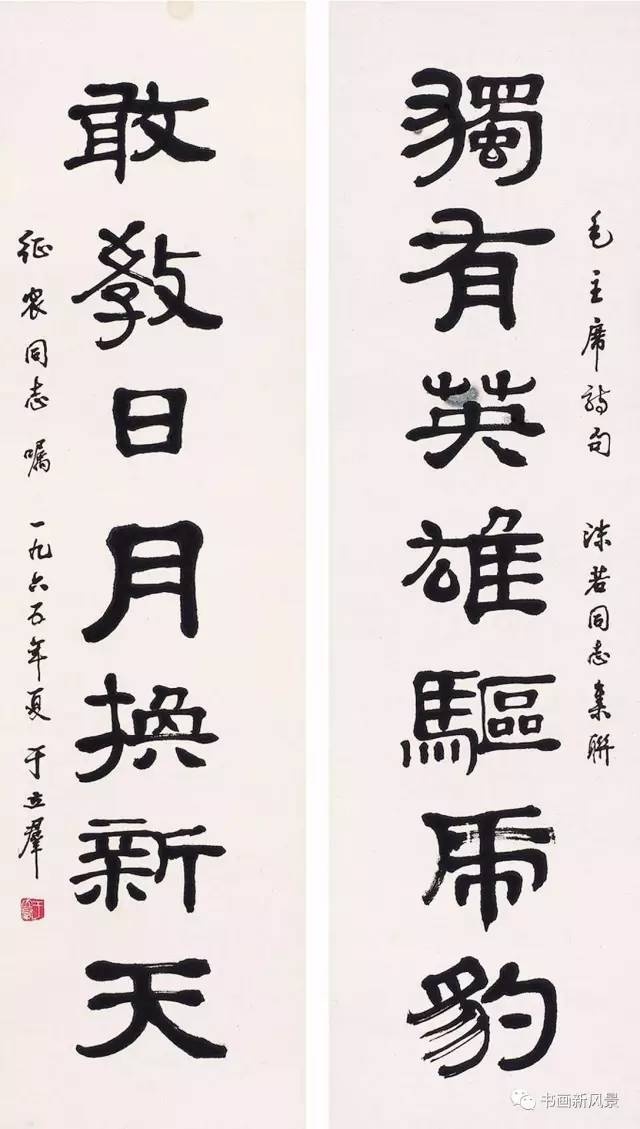 毛主席诗句 沫若同志集联
獨有英雄驅虎豹
敢教日月換新天
征农同志嘱 一九六五年夏 于立群
书画新风景